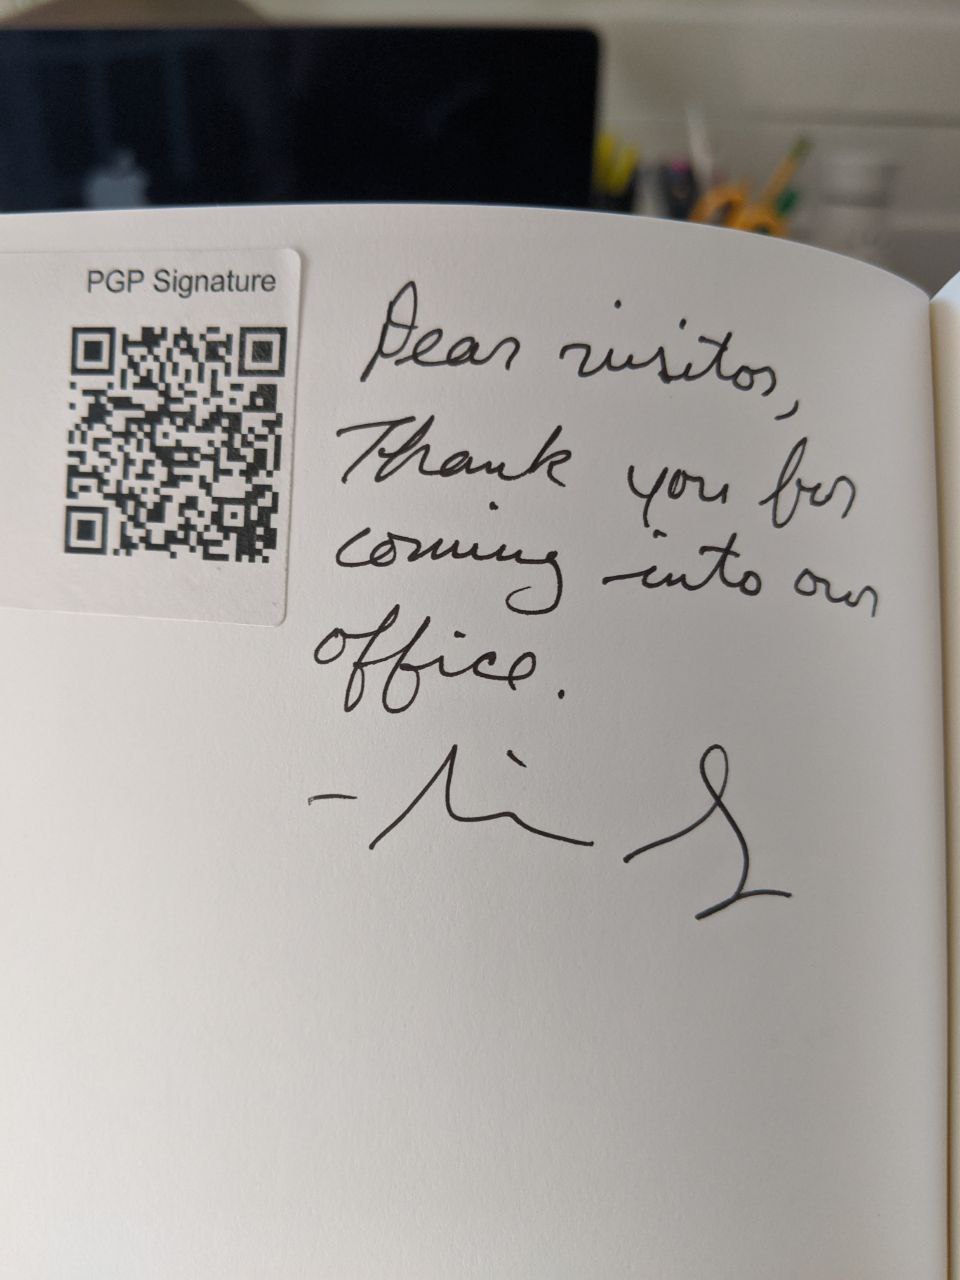 PGP Signature
Dear visitor,
Thank you for
coming into our
office.